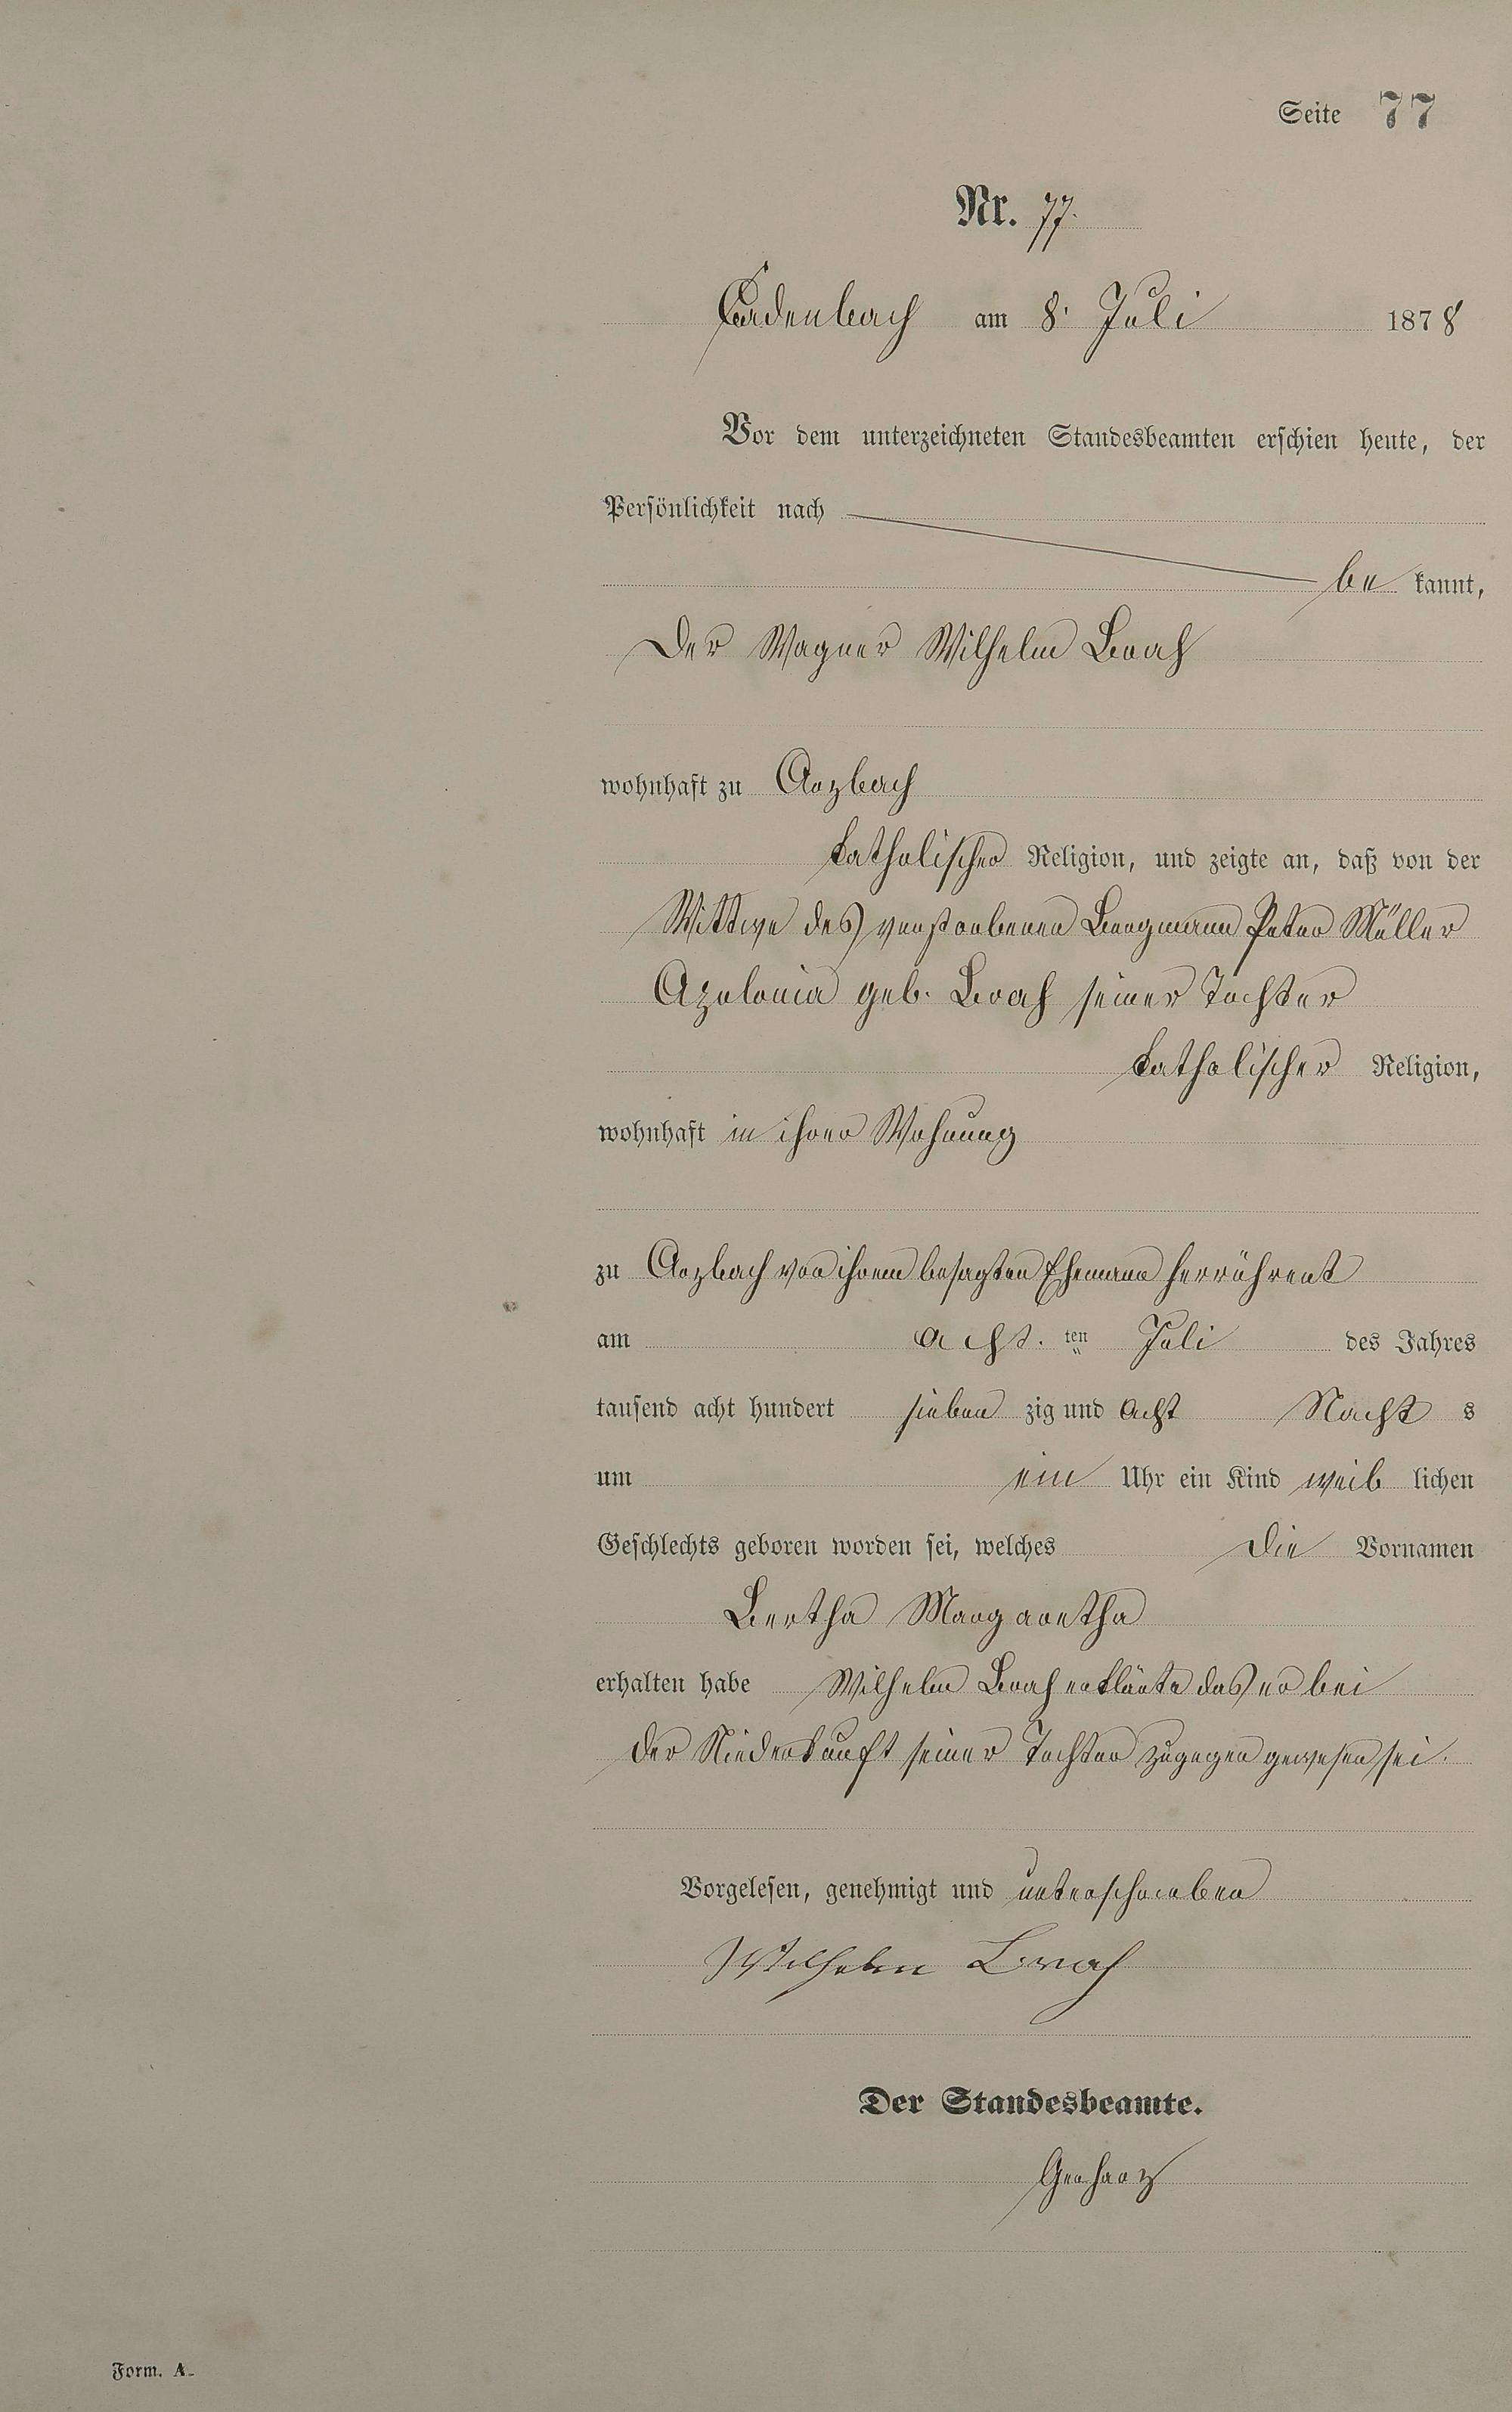 Seite 77
Nr. 77.
Cadenbach am 8. Juli 1878
Vor dem unterzeichneten Standesbeamten erschien heute, der
Persönlichkeit nach
be kannt,
der Wagner Wilhelm Brah
wohnhaft zu Arzbach
katholischer Religion, und zeigte an, daß von der
Wittwe des verstorbenen Bergmann Peter Müller
Apolonia geb. Brah seiner Tochter
katholischer Religion,
wohnhaft in ihrer Wohnung
zu Arzbach von ihrem besagten Ehemann herrührent
am acht. ten Juli des Jahres
tausend acht hundert sieben zig und acht Nacht s
um ein Uhr ein Kind weib lichen
Geschlechts geboren worden sei, welches die Vornamen
Bertha Margaretha
erhalten habe Wilhelm Brah erklärte das er bei
der Niederkunft seiner Tochter zugegen gewesen sei.
Vorgelesen, genehmigt und unterschrieben
Wilhelm Brah
Der Standesbeamte.
Gerharz
Form. A.